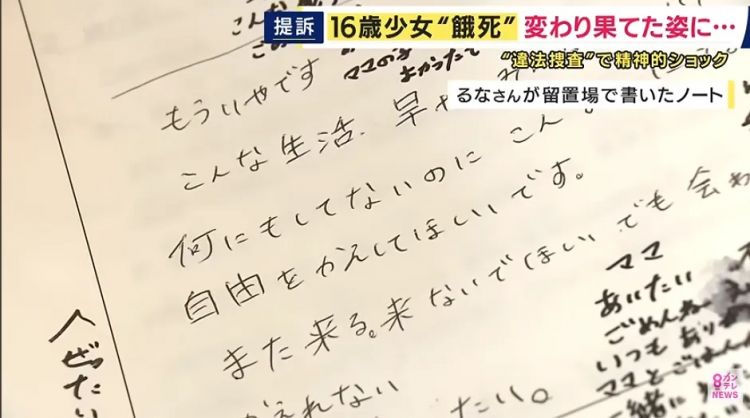 提訴 16歳少女“餓死” 変わり果てた姿に…
“違法捜査”で精神的ショック
るなさんが留置場で書いたノート
ママの
よかったて
もういやです
こんな生活、早
何にもしてないのに こん
自由をかえしてほしいです。
また来る。来ないでほしい でも 会わ
かえれない たい。
ママ
あいたい
ごめんね
いつもあり
ママとごはん
一緒に
カンテレ
NEWS